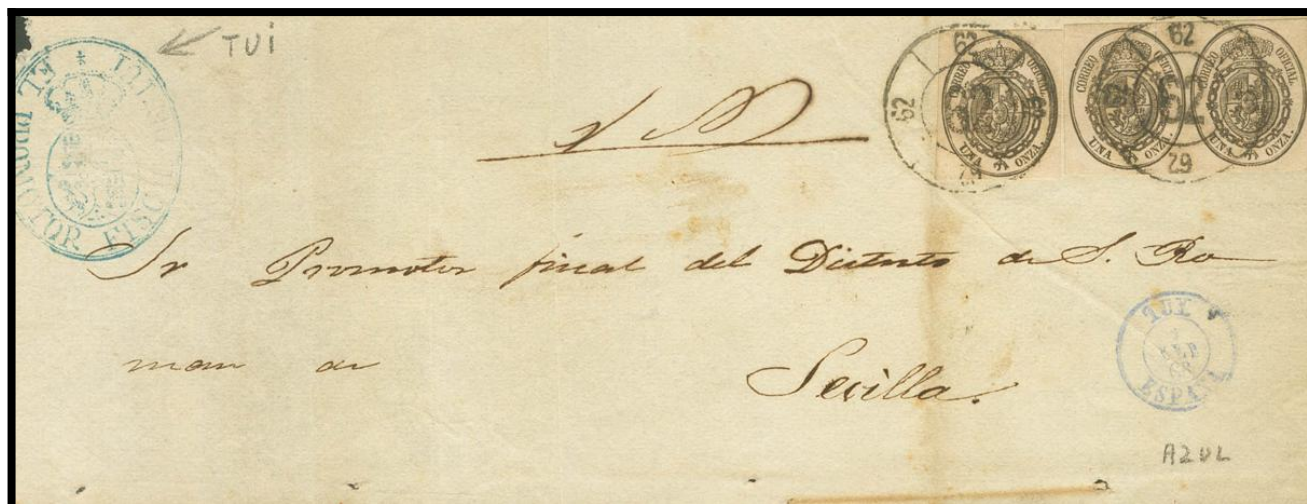 TUI
EL PROMOTOR FISCAL
62 62 62 62
CORREO OFICIAL
UNA ONZA.
CORREO OFICIAL
UNA ONZA.
CORREO OFICIAL
UNA ONZA.
62 62 62
S N
Sr Promotor fiscal del Distrito de S. Ro
man de Sevilla.
TUY
7
SEP
68
ESPAÑA
AZUL